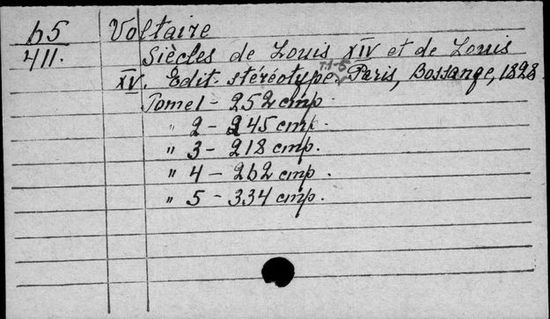 65 Voltaire
411. Siècles de Louis XIV et de Louis
XV. Edit. stéréotype. т.1-5 Paris, Bossange, 1828.
Tome 1 - 252 стр.
" 2 - 245 стр.
" 3 - 218 стр.
" 4 - 262 стр.
" 5 - 334 стр.